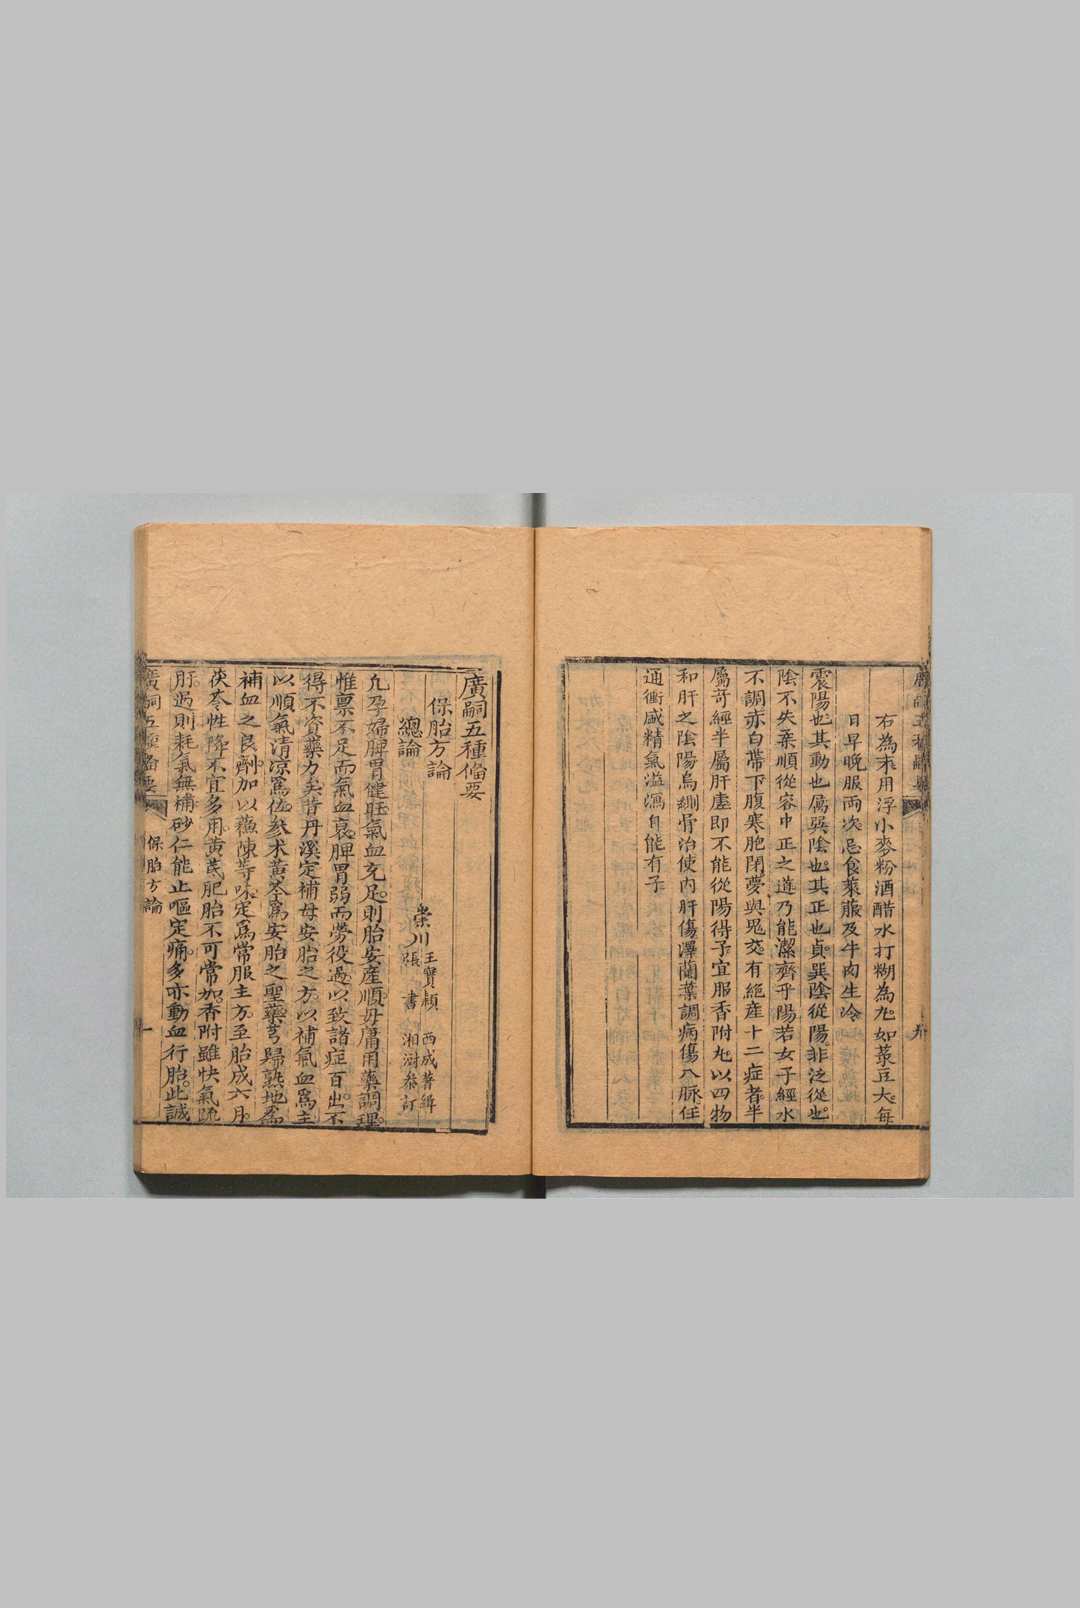 右為末用浮小麥粉酒醋水打糊為丸如菉豆大每
日早晚服兩次忌食萊菔及牛肉生冷
震陽也其動也厲巽陰也其正也貞巽陰從陽非泛從也
陰不失柔順從容中正之道乃能潔齊乎陽若女子經水
不調赤白帶下腹寒胞閉夢與鬼交有絕產十二症者半
屬奇經半屬肝虛即不能從陽得子宜服香附丸以四物
和肝之陰陽烏鰂骨治使內肝傷澤蘭葉調病傷八脈任
通衝盛精氣溢瀉自能有子
九
廣嗣五種備要
保胎方論
榮川 王寶穎 西成著緝
張 書 湘澍叅訂
總論
凢孕婦脾胃健旺氣血充足則胎安產順毋庸用藥調理
惟稟不足而氣血衰脾胃弱而勞役過以致諸症百出不
得不資藥力矣昔丹溪定補母安胎之方以補氣血為主
以順氣清凉為佐叅术黃芩為安胎之聖藥芎歸熟地為
補血之良劑加以蘓陳等味定為常服主方至胎成六月
茯苓性降不宜多用黃芪肥胎不可常加香附雖快氣疏
肝過則耗氣無補砂仁能止嘔定痛多亦動血行胎此誠
廣嗣五種備要
保胎方論
一